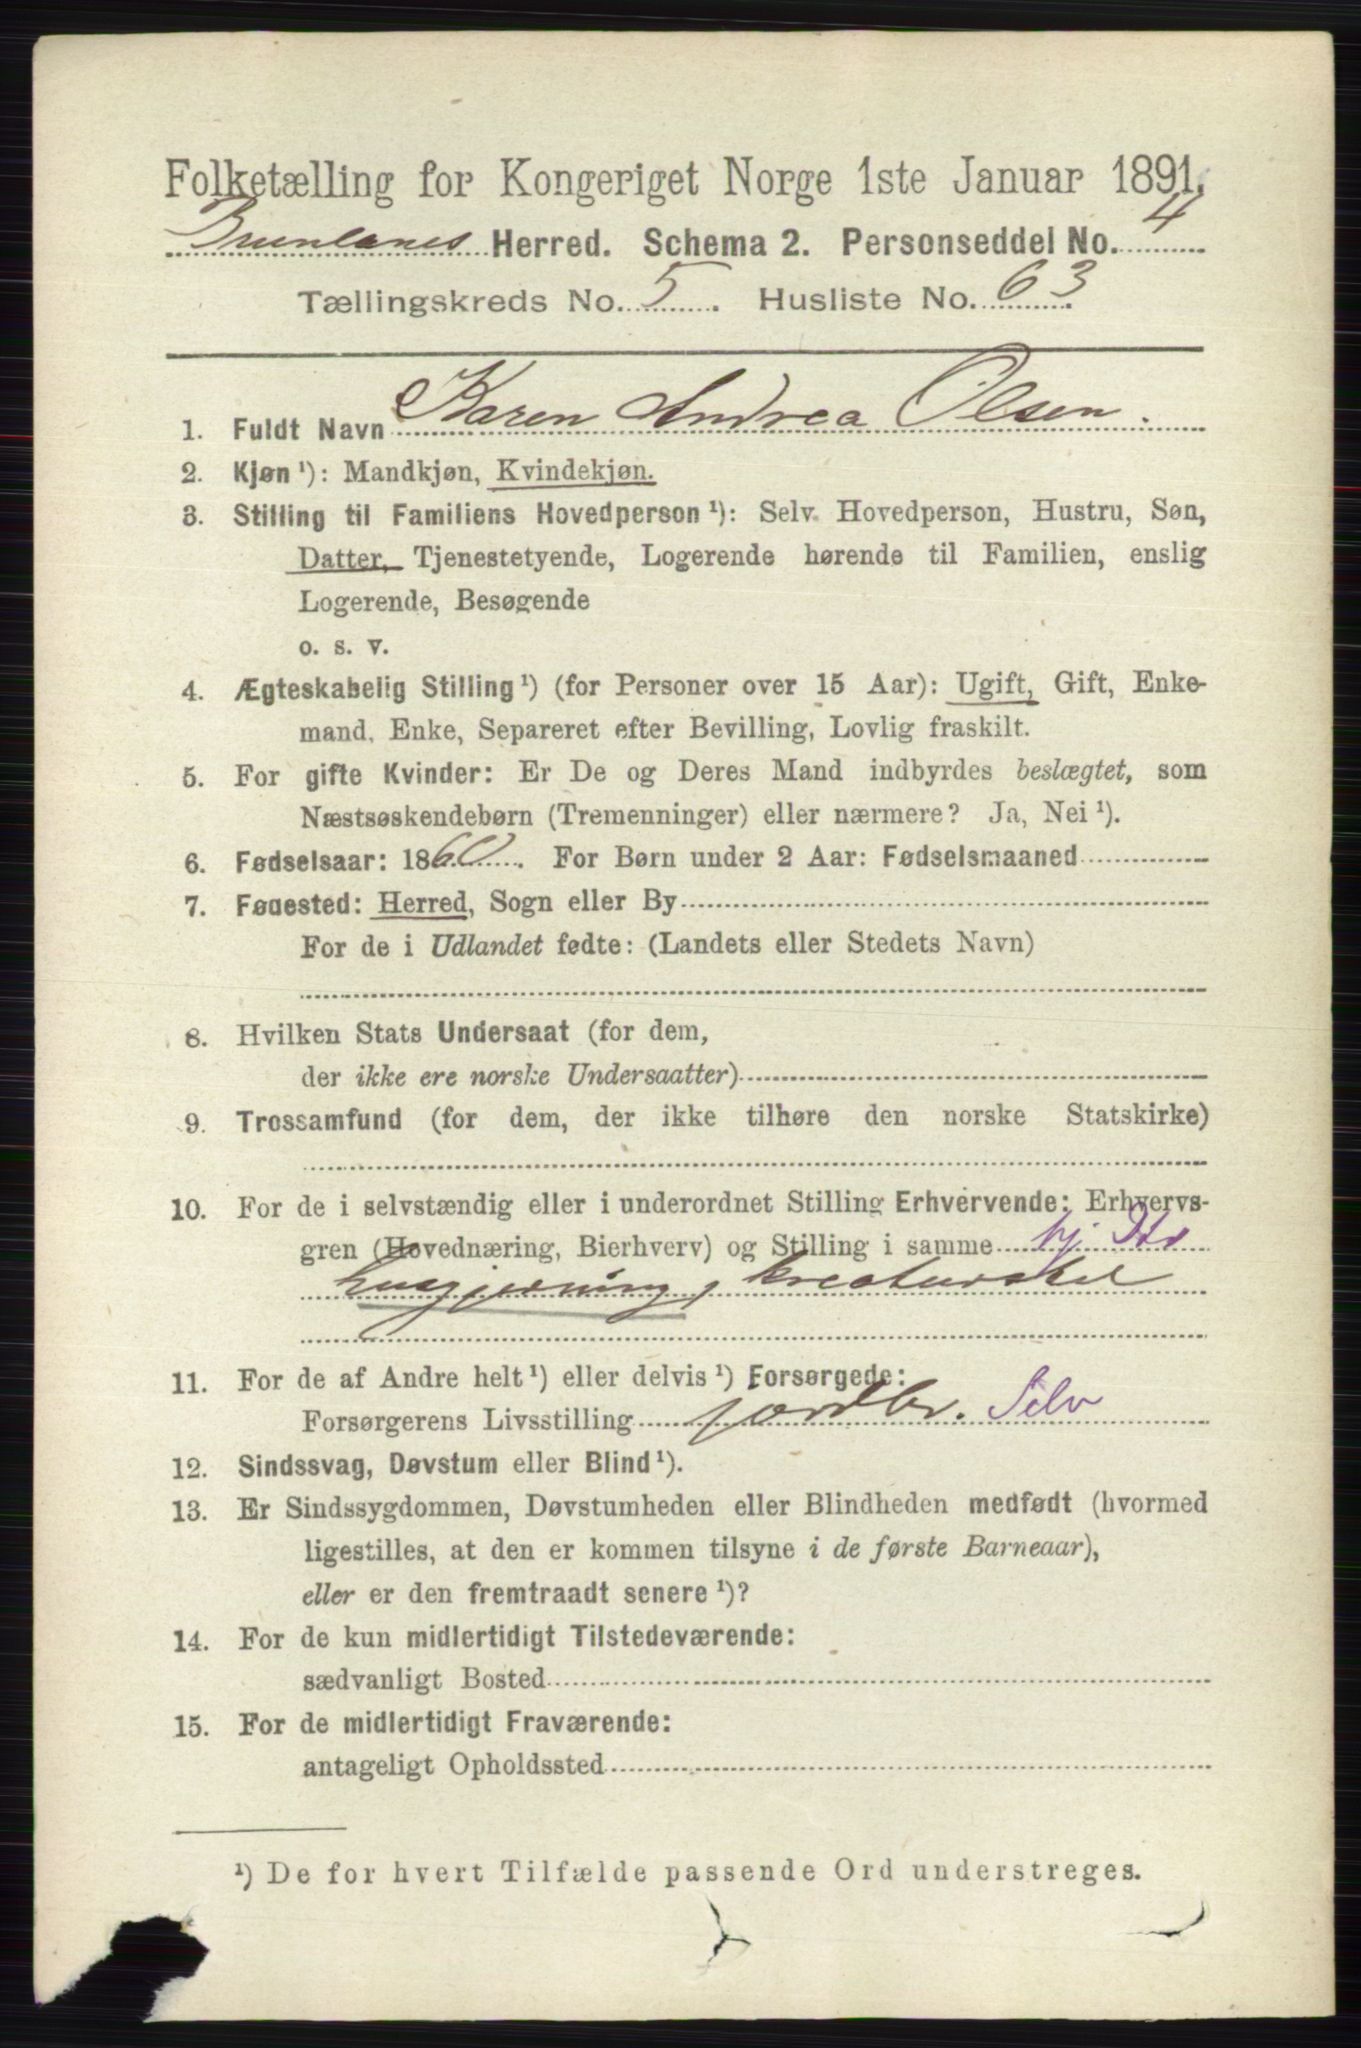 Folketælling for Kongeriget Norge 1ste Januar 1891.
Brunlanes Herred. Schema 2. Personseddel No. 4
Tællingskreds No. 5. Husliste No. 63
1. Fuldt Navn Karen Andrea Olsen.
2. Kjøn ¹): Mandkjøn, Kvindekjøn.
3. Stilling til Familiens Hovedperson ¹): Selv. Hovedperson, Hustru, Søn,
Datter, Tjenestetyende, Logerende hørende til Familien, enslig
Logerende, Besøgende
o. s. v.
4. Ægteskabelig Stilling ¹) (for Personer over 15 Aar): Ugift, Gift, Enke-
mand, Enke, Separeret efter Bevilling, Lovlig fraskilt.
5. For gifte Kvinder: Er De og Deres Mand indbyrdes beslægtet, som
Næstsøskendebørn (Tremenninger) eller nærmere? Ja, Nei ¹).
6. Fødselsaar: 1860. For Børn under 2 Aar: Fødselsmaaned
7. Fødested: Herred, Sogn eller By
For de i Udlandet fødte: (Landets eller Stedets Navn)
8. Hvilken Stats Undersaat (for dem,
der ikke ere norske Undersaatter)
9. Trossamfund (for dem, der ikke tilhøre den norske Statskirke)
10. For de i selvstændig eller i underordnet Stilling Erhvervende: Erhvervs-
gren (Hovednæring, Bierhverv) og Stilling i samme hj.
husgjerning, kreaturstel
11. For de af Andre helt ¹) eller delvis ¹) Forsørgede:
Forsørgerens Livsstilling jordbr. Selv
12. Sindssvag, Døvstum eller Blind ¹).
13. Er Sindssygdommen, Døvstumheden eller Blindheden medfødt (hvormed
ligestilles, at den er kommen tilsyne i de første Barneaar),
eller er den fremtraadt senere ¹)?
14. For de kun midlertidigt Tilstedeværende:
sædvanligt Bosted
15. For de midlertidigt Fraværende:
antageligt Opholdssted
¹) De for hvert Tilfælde passende Ord understreges.